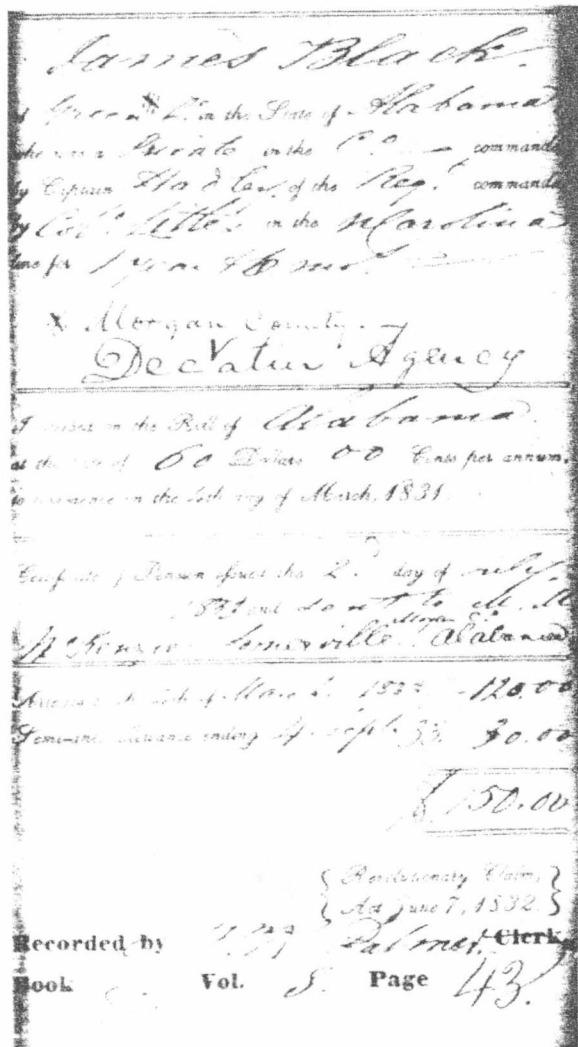 James Black
Green Co. in the State of Alabama
who was a Private in the Co. command
by Captain of the Regt. command
by Col. Little in the N Carolina
line for 1 year & 6 mos.
x Morgan County
Decatur Agency
on the Roll of Alabama
at the rate of 60 Dollars 00 Cents per annum,
to commence on the 4th day of March, 1831
Certificate of Pension issued the 2 day of July
and sent to M. M
Morgan Co.
McKenzie Somerville Alabama
Arrears to the 4th of March 1833 120.00
Semi-anl. allowance ending 4 Sept 33 30.00
$ 150.00
{ Revolutionary Claim, }
{ Act June 7, 1832. }
Recorded by Palmer Clerk,
Book Vol. 8 Page 43.